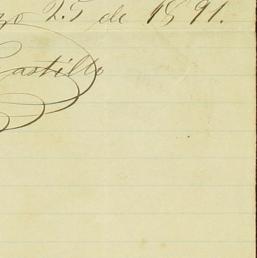 25 de 1891.
Castillo